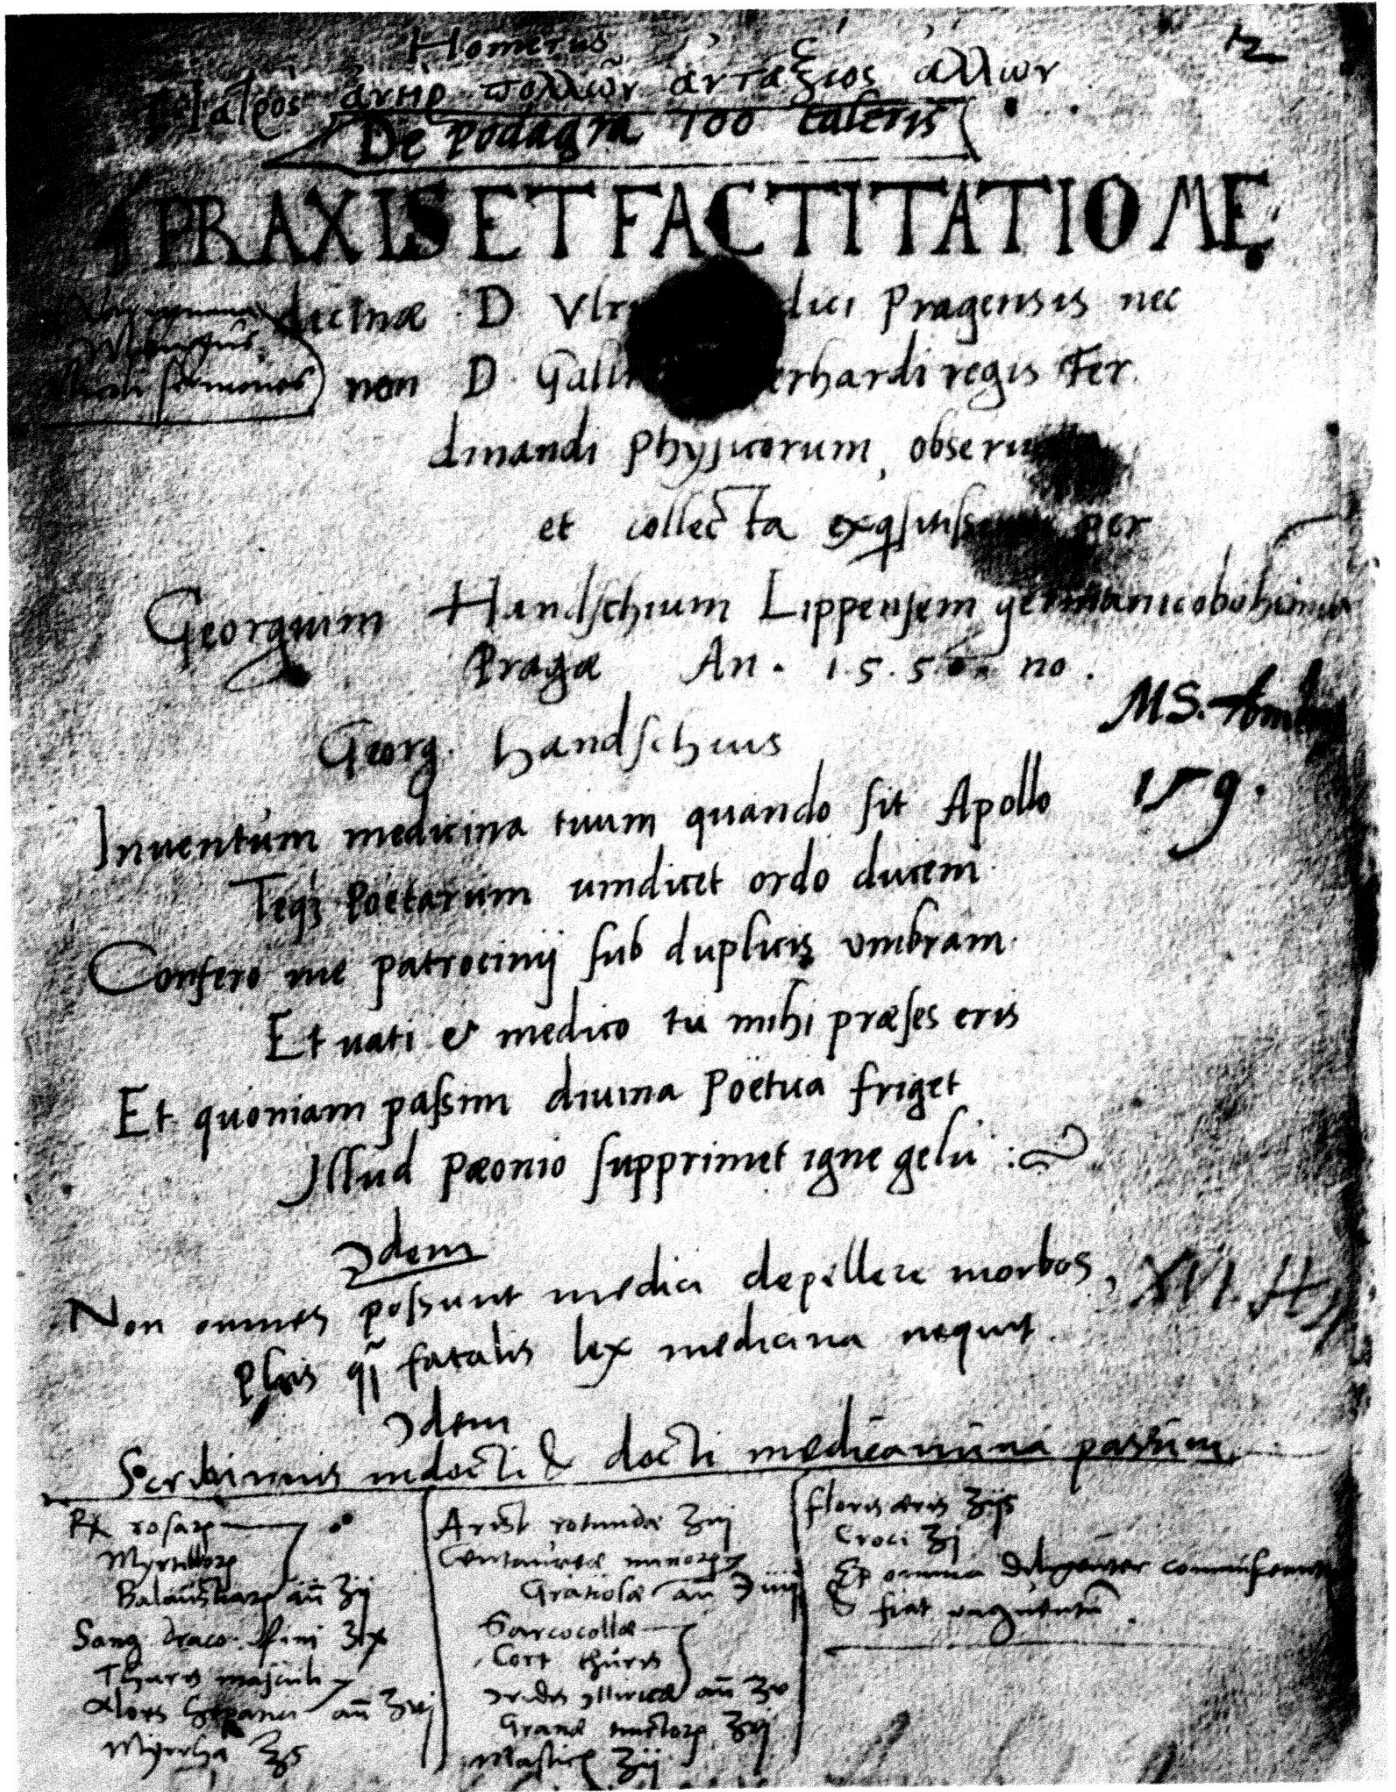 Homerus
2
Ἰατρὸς ἀνὴρ πολλῶν ἀντάξιος ἄλλων
De podagra 100 taleris
PRAXIS ET FACTITATIO ME
dicinæ D Vlr dici Pragensis nec
sermones
non D. Galli erhardi regis Fer
dinandi physicorum, obser
et collecta exqsitiss per
Georgium Handschium Lippensem germanicobohimum
Pragæ An. 1.5.5 no.
M.S.
Georg. Handschius
159.
Inuentum medicina tuum quando sit Apollo
Teqз poëtarum uindicet ordo ducem
Confero me patrocinij sub duplicis vmbram
Et uati & medico tu mihi præses eris
Et quoniam passim diuina Poëtica friget
Illud pæonio supprimet igne gelu :
Idem
Non omnes possunt medici depellere morbos,
XVI. H
fatalis lex medicina nequit.
Idem
Scribimus indocti & docti medicamina passim
℞ rosarꝝ
Myrtillorꝝ
Balaustiarꝝ añ ʒij
Sang. draco. fini ʒix
Thuris masculi
Aloes añ ʒvj
Myrrha ʒs
Arist rotundæ ʒiij
Centaureæ minorꝝ
Gratiolæ añ ℈iiij
Sarcocollæ
Cort thuris
Iridis Illiricæ añ ʒv
Grana tinctorꝝ ʒvj
Mastic ʒij
floris æris ʒijs
Croci ʒj
Et omnia diligenter
& fiat ungentū.